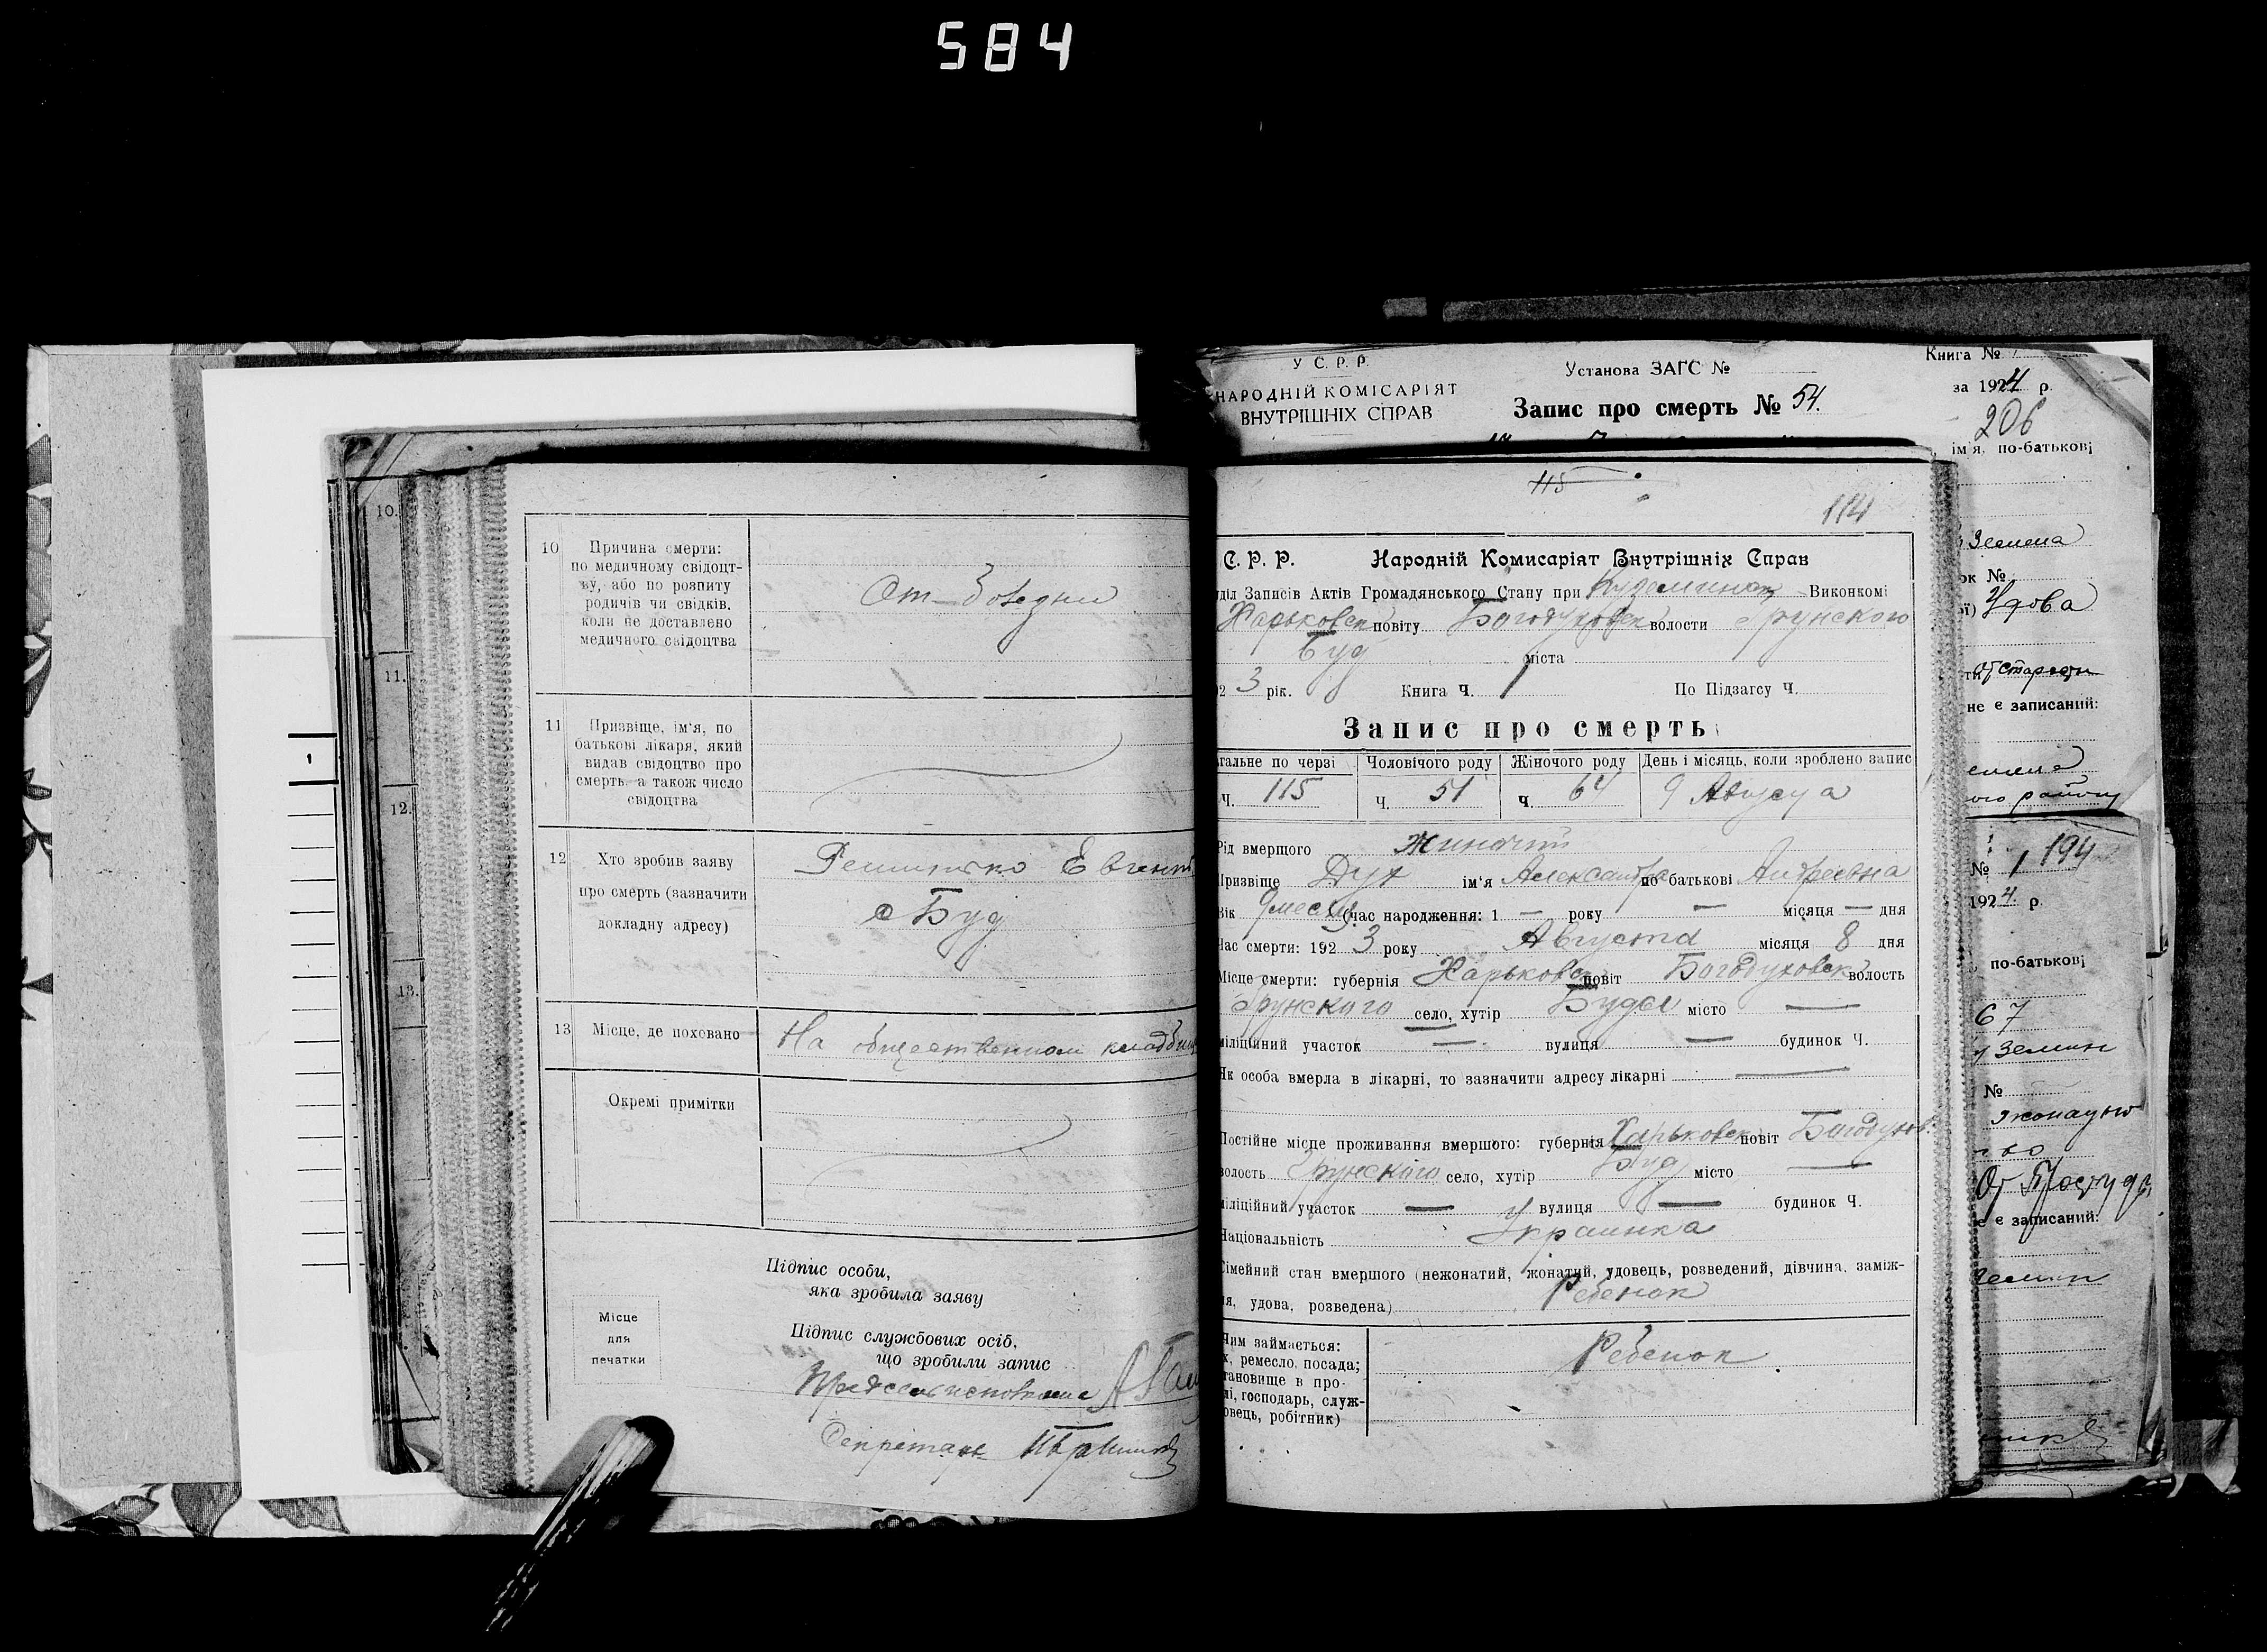 584
У С. Р. Р.
НАРОДНІЙ КОМІСАРІЯТ
ВНУТРІШНІХ СПРАВ
Установа ЗАГС №
Запис про смерть № 54.
Книга №
за 1924 р.
206
ім'я, по-батькові
10.
11.
12.
13.
1
10 Причина смерти:
по медичному свідоцт-
ву, або по розпиту
родичів чи свідків,
коли не доставлено
медичного свідоцтва
От
11 Призвіще, ім'я, по
батькові лікаря, який
видав свідоцтво про
смерть, а також число
свідоцтва
12 Хто зробив заяву
про смерть (зазначити
докладну адресу)
Евгени
с Буд
13 Місце, де поховано
На общественном кладбищ
Окремі примітки
Підпис особи,
яка зробила заяву
Місце
для
печатки
Підпис службових осіб,
що зробили запис
Секретарь
115
114
С. Р. Р. Народній Комисаріят Внутрішніх Справ
діл Записів Актів Громадянського Стану при Виконкомі
Харьковск повіту Богодуховск волости Грунского
Буд міста
2 3 рік. Книга Ч. 1 По Підзагсу Ч.
Запис про смерть
гальне по черзі Чоловічого роду Жіночого роду День і місяць, коли зроблено запис
Ч. 115 Ч. 51 Ч 64 9 Августа
Рід вмерщого Жиночий
Призвіще Дух ім'я Александра по батькові Андреевна
Вік 9 месяц (час народження: 1 — року — місяця — дня
Час смерти: 192 3 року Августа місяця 8 дня
Місце смерти: губернія Харьковск повіт Богодуховск волость
Грунского село, хутір Буды місто —
міліційний участок — вулиця — будинок Ч.
Як особа вмерла в лікарні, то зазначити адресу лікарні —
Постійне місце проживання вмершого: губернія Харьковск повіт Богодухов.
волость Грунского село, хутір Буд місто —
міліційний участок — вулиця — будинок Ч.
Національність Украинка
Сімейний стан вмершого (нежонатий, жонатий, удовець, розведений, дівчина, заміж-
ня, удова, розведена) Ребенок
Чим займається:
х, ремесло, посада;
тановище в про-
лі, господарь, служ-
овець, робітник)
Ребенок
ок №
Удова
не є записаний:
№ 1 194
1924 р.
по-батькові
67
№
е є записаний: